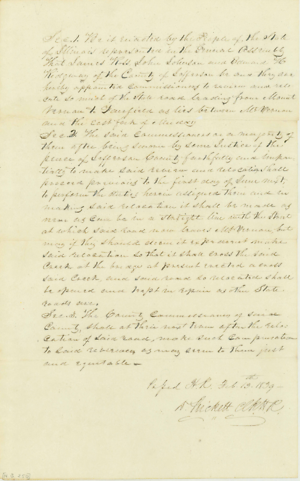 Sec 1. Be it enacted by the People of the State
of Illinois represented in the General Assembly
That James
John Johnson and
Ridgway of the County of Jefferson be and they are
hereby appointed Commissioners to review and relo-
cate so much of the State road leading from Mount
Vernon to Fairfield as lies between Mt Vernon
and the east fork of
Sec 2. The said Commissioners or a majority of
them after being sworn by some Justice of the
peace of Jefferson County faithfully and impar-
tially to make said review and relocation shall
proceed
to the first day of June next,
to perform the duties herein assigned them and in
making said relocation it shall be made as
near as can be in a straight line with the Street
at which said road now leaves Mt Vernon, but
may if they should deem it expedient make
said relocation so that it shall cross the said
Creek at the bridge at present erected across
said Creek and said road so relocated shall
be opened and kept in repair as other State
roads are.
Sec 3. The County Commissioners of said
County, shall at their next term after the relo-
cation of said road, make such Compensation
to said reviewers as may seem to them just
and equitable.
Passed H.R. Feb 1839.
D. Prickett Clk H.R.